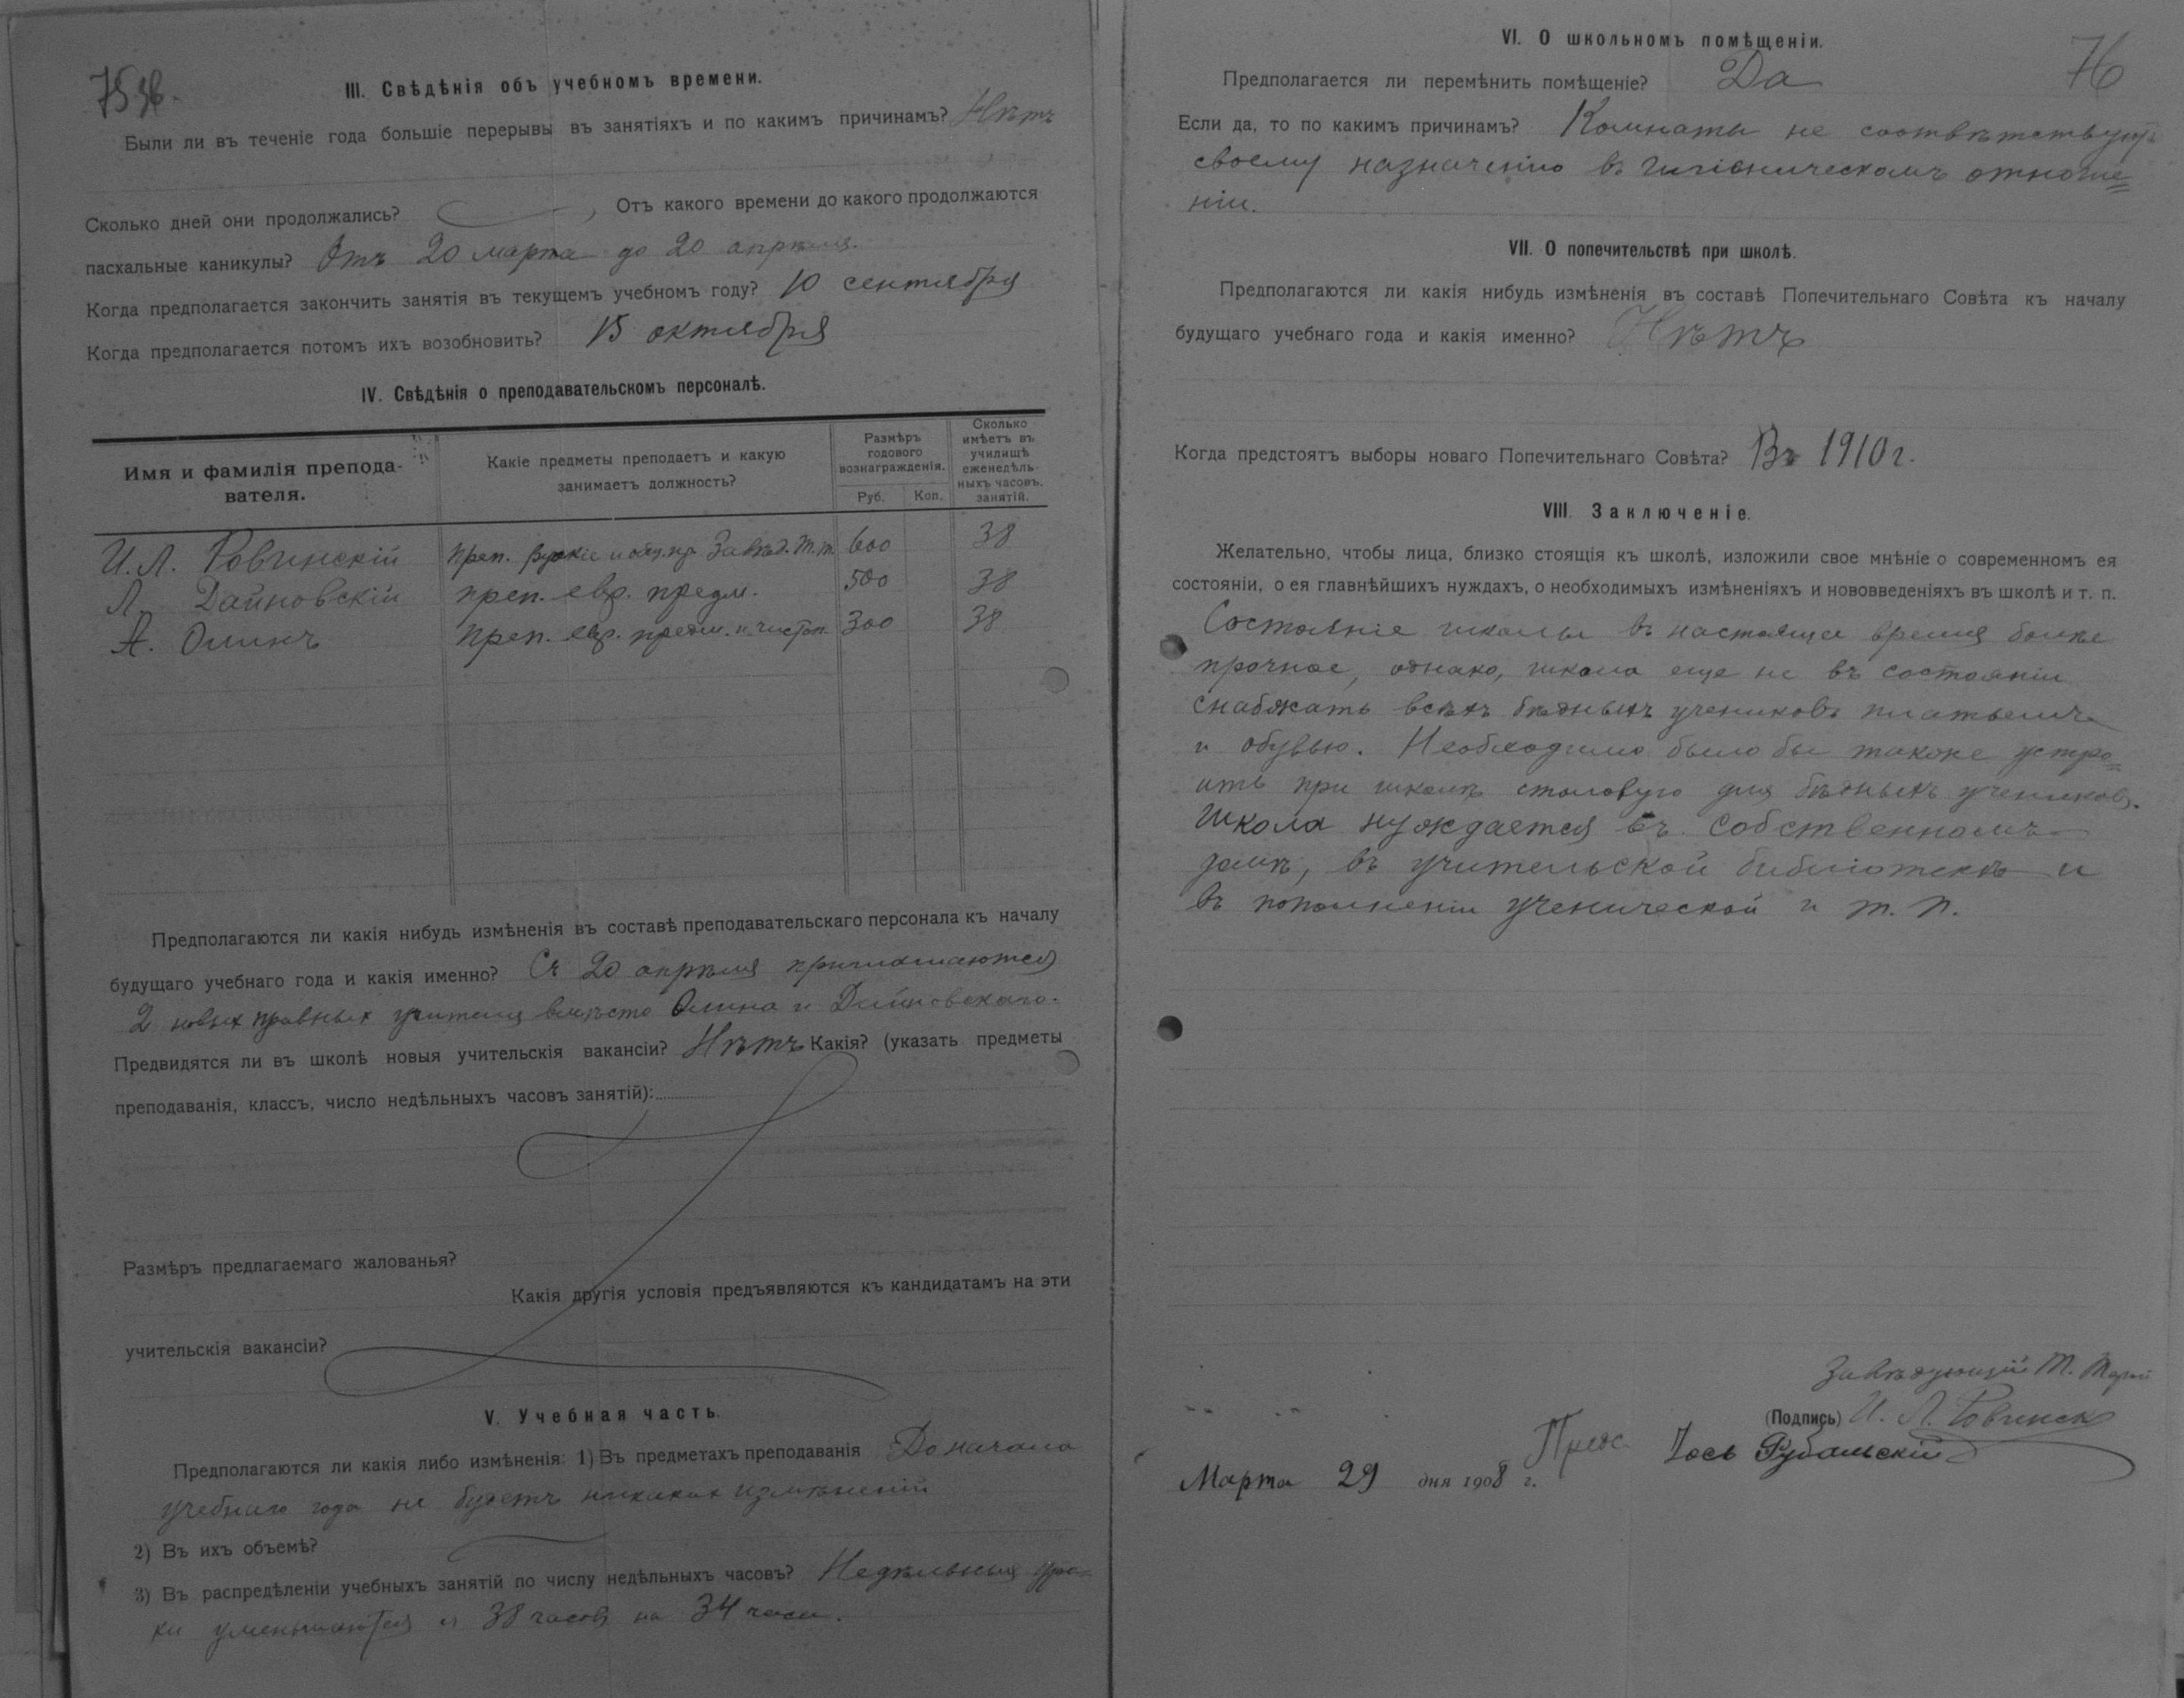 75 об.
III. Свѣдѣнія объ учебномъ времени.
Были ли въ теченіе года большіе перерывы въ занятіяхъ и по какимъ причинамъ? Нѣтъ
Сколько дней они продолжались? Отъ какого времени до какого продолжаются
пасхальные каникулы? Отъ 20 марта до 20 апрѣля.
Когда предполагается закончить занятія въ текущемъ учебномъ году? 10 сентября
Когда предполагается потомъ ихъ возобновить? 15 октября
IV. Свѣдѣнія о преподавательскомъ персоналѣ.
Имя и фамилія препода-
вателя.
Какіе предметы преподаетъ и какую
занимаетъ должность?
Размѣръ
годового
вознагражденія.
Руб. Коп.
Сколько
имѣетъ въ
училищѣ
еженедѣль-
ныхъ часовъ.
занятій.
И. Л. Ровинскій преп. русскіе и общ. пр. Завѣд. Т. т. 600 38
Л. Дайновскій преп. евр. предм. 500 38
А. Олинъ преп. евр. предм. и чистоп. 300 38
Предполагаются ли какія нибудь измѣненія въ составѣ преподавательскаго персонала къ началу
будущаго учебнаго года и какія именно? Съ 20 апрѣля приглашаются
2 новых правных учителя вмѣсто Олина и Дайновскаго.
Предвидятся ли въ школѣ новыя учительскія вакансіи? Нѣтъ Какія? (указать предметы
преподаванія, классъ, число недѣльныхъ часовъ занятій):
Размѣръ предлагаемаго жалованья?
Какія другія условія предъявляются къ кандидатамъ на эти
учительскія вакансіи?
V. Учебная часть.
Предполагаются ли какія либо измѣненія: 1) Въ предметахъ преподаванія До начала
учебнаго года не будетъ никакихъ измѣненій
2) Въ ихъ объемѣ?
3) Въ распредѣленіи учебныхъ занятій по числу недѣльныхъ часовъ? Недѣльныя уро-
ки уменьшаются с 38 часовъ на 34 часа.
76
VI. О школьномъ помѣщеніи.
Предполагается ли перемѣнить помѣщеніе? Да
Если да, то по какимъ причинамъ? Комнаты не соотвѣтствуютъ
своему назначенію въ гигіеническомъ отноше=
ніи.
VII. О попечительствѣ при школѣ.
Предполагаются ли какія нибудь измѣненія въ составѣ Попечительнаго Совѣта къ началу
будущаго учебнаго года и какія именно? Нѣтъ
Когда предстоятъ выборы новаго Попечительнаго Совѣта? Въ 1910 г.
VIII. Заключеніе.
Желательно, чтобы лица, близко стоящія къ школѣ, изложили свое мнѣніе о современномъ ея
состояніи, о ея главнѣйшихъ нуждахъ, о необходимыхъ измѣненіяхъ и нововведеніяхъ въ школѣ и т. п.
Состояніе школы въ настоящее время болѣе
прочное, однако, школа еще не въ состояніи
снабжать всѣхъ бѣдныхъ учениковъ платьемъ
и обувью. Необходимо было бы также устро=
ить при школѣ столовую для бѣдныхъ учениковъ.
Школа нуждается въ собственномъ
домѣ, въ учительской библіотекѣ и
въ пополненіи ученической и т. п.
Завѣдующій Т. Торы
(Подпись) И. Л. Ровинск
Предс. Іось Рубальскій
Марта 29 дня 1908 г.